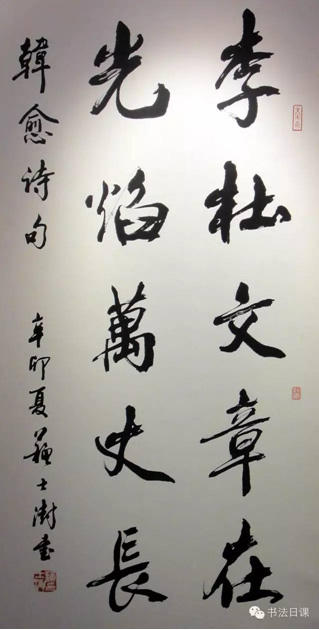 李杜文章在
光焰萬丈長
韓愈诗句
辛卯夏 蘇士澍書
书法日课